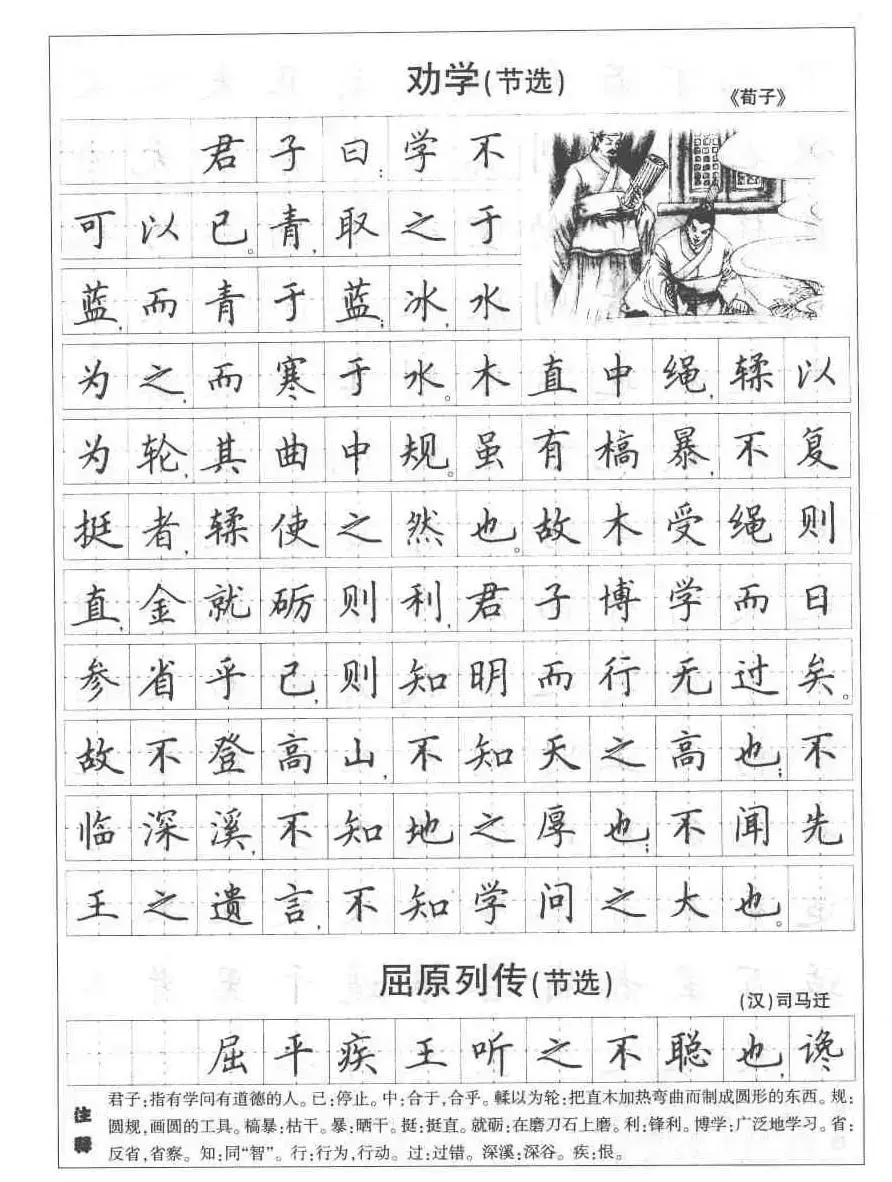 劝学(节选)
《荀子》
君子曰:学不
可以已。青,取之于
蓝,而青于蓝;冰,水
为之,而寒于水。木直中绳,𫐓以
为轮,其曲中规。虽有槁暴,不复
挺者,𫐓使之然也。故木受绳则
直,金就砺则利,君子博学而日
参省乎己,则知明而行无过矣。
故不登高山,不知天之高也;不
临深溪,不知地之厚也;不闻先
王之遗言,不知学问之大也。
屈原列传(节选)
(汉)司马迁
屈平疾王听之不聪也,谗
注释
君子:指有学问有道德的人。已:停止。中:合于,合乎。𫐓以为轮:把直木加热弯曲而制成圆形的东西。规:
圆规,画圆的工具。槁暴:枯干。暴:晒干。挺:挺直。就砺:在磨刀石上磨。利:锋利。博学:广泛地学习。省:
反省,省察。知:同“智”。行:行为,行动。过:过错。深溪:深谷。疾:恨。